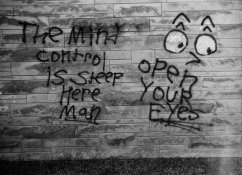 The Mint
Control
Is Steep
Here
Man
open
Your
Eyes